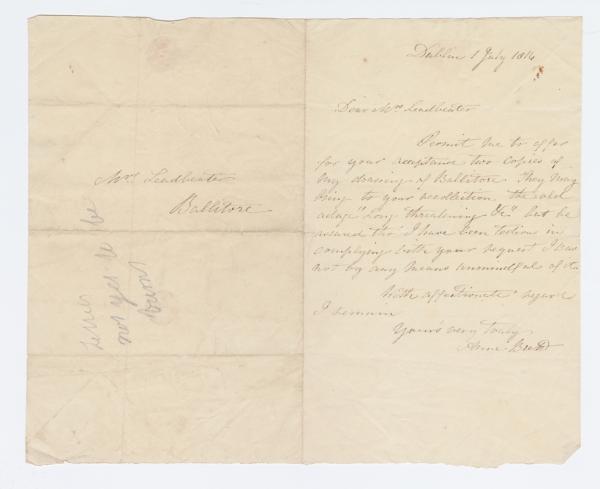 Dublin 1 July 1816
Dear Mrs Leadbeater
Permit me to offer
for your acceptance two copies of
my drawing of Ballitore. They may
bring to your recollection the old
adage "Long threatening &c" but be
assured tho' I have been tedious in
complying with your request I was
not by any means unmindful of it.
With affectionate regard
I remain
Yours very truly
Anne
Mrs Leadbeater
Ballitore
Letters
not yet to be